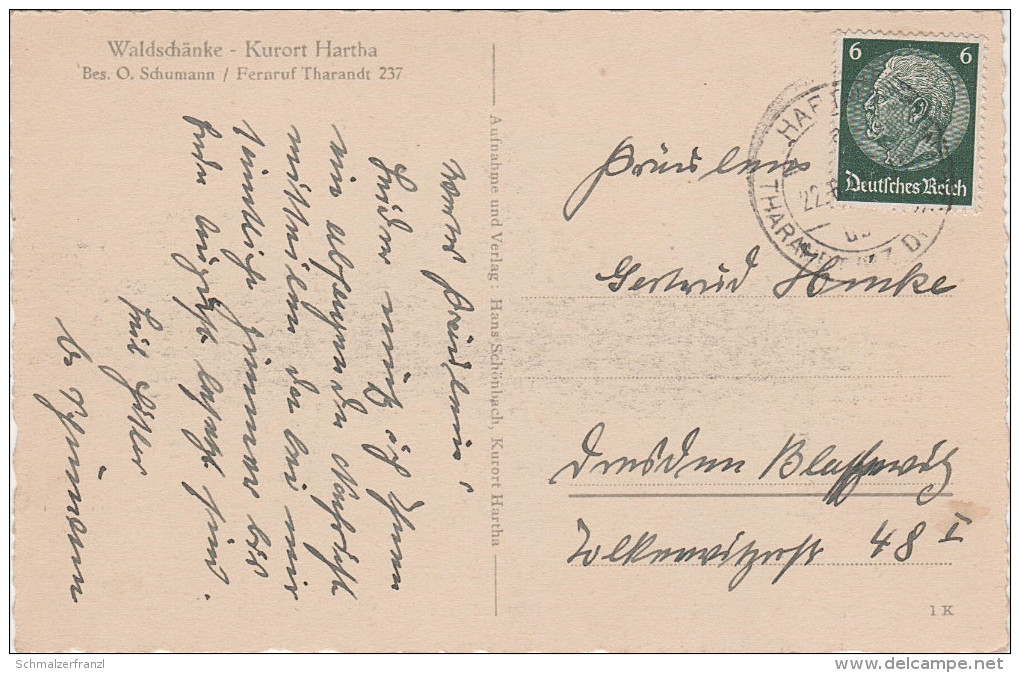 Waldschänke - Kurort Hartha
Bes. O. Schumann / Fernruf Tharandt 237
Wertes Fräulein!
Leider muß ich Ihnen
eine absagende Nachricht
mitteilen da bei mir
sämtliche Zimmer bis
Ende August besetzt sind.
Heil Hitler
O. Schumann
Aufnahme und Verlag: Hans Schönbach, Kurort Hartha
6 6
Deutsches Reich
HART
22.
THARANDT
Fräulein
Gertrud Hinke
Dresden Blasewitz
Tolkewitzerstr 48 I
1 K
Schmalzerfranzl
www.delcampe.net